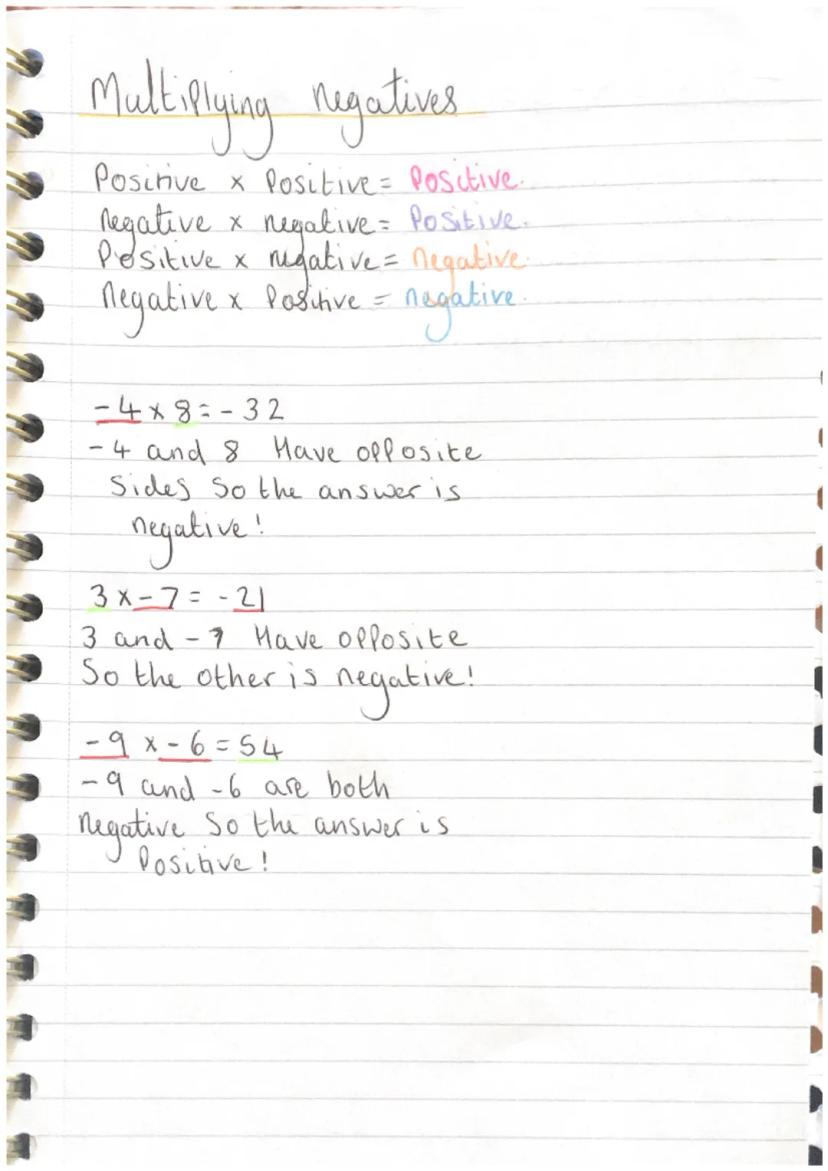 Multiplying negatives
Positive x Positive = Positive.
negative x negative = Positive.
Positive x negative = negative.
Negative x Positive = negative.
-4 x 8 = -32
-4 and 8 Have opposite
Sides So the answer is
negative!
3 x -7 = -21
3 and -7 Have opposite
So the other is negative!
-9 x -6 = 54
-9 and -6 are both
negative So the answer is
Positive!